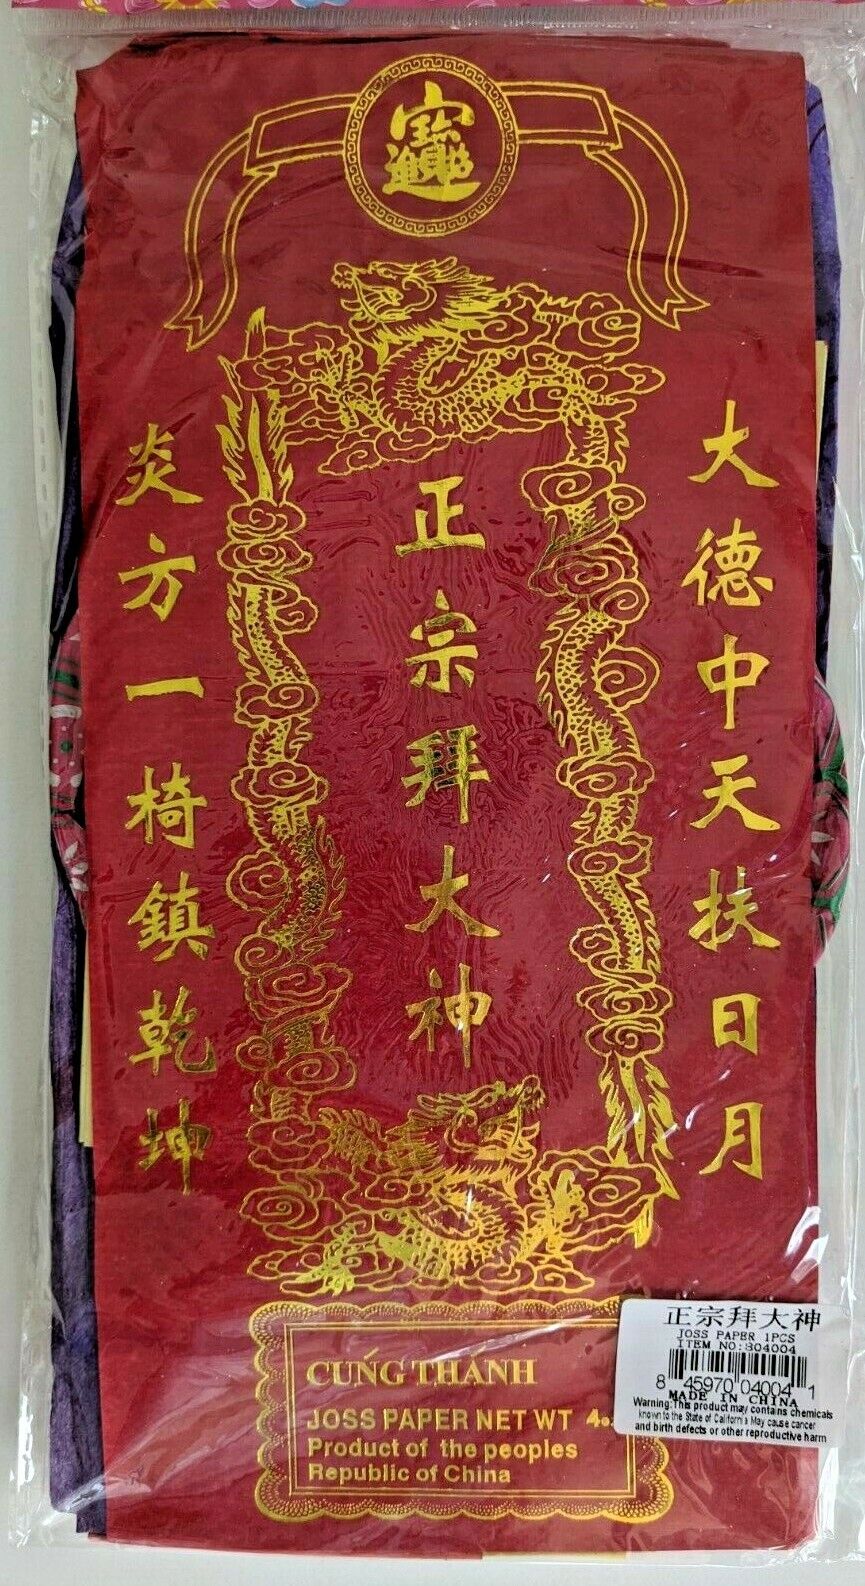 招財進寶
大德中天扶日月
正宗拜大神
炎方一椅鎮乾坤
CUŃG THÁNH
JOSS PAPER NET WT 4.
Product of the peoples
Republic of China
正宗拜大神
JOSS PAPER 1PCS
ITEM NO:804004
8 45970 04004 1
MADE IN CHINA
Warning:This product may contains chemicals
known to the State of California May cause cancer
and birth defects or other reproductive harm